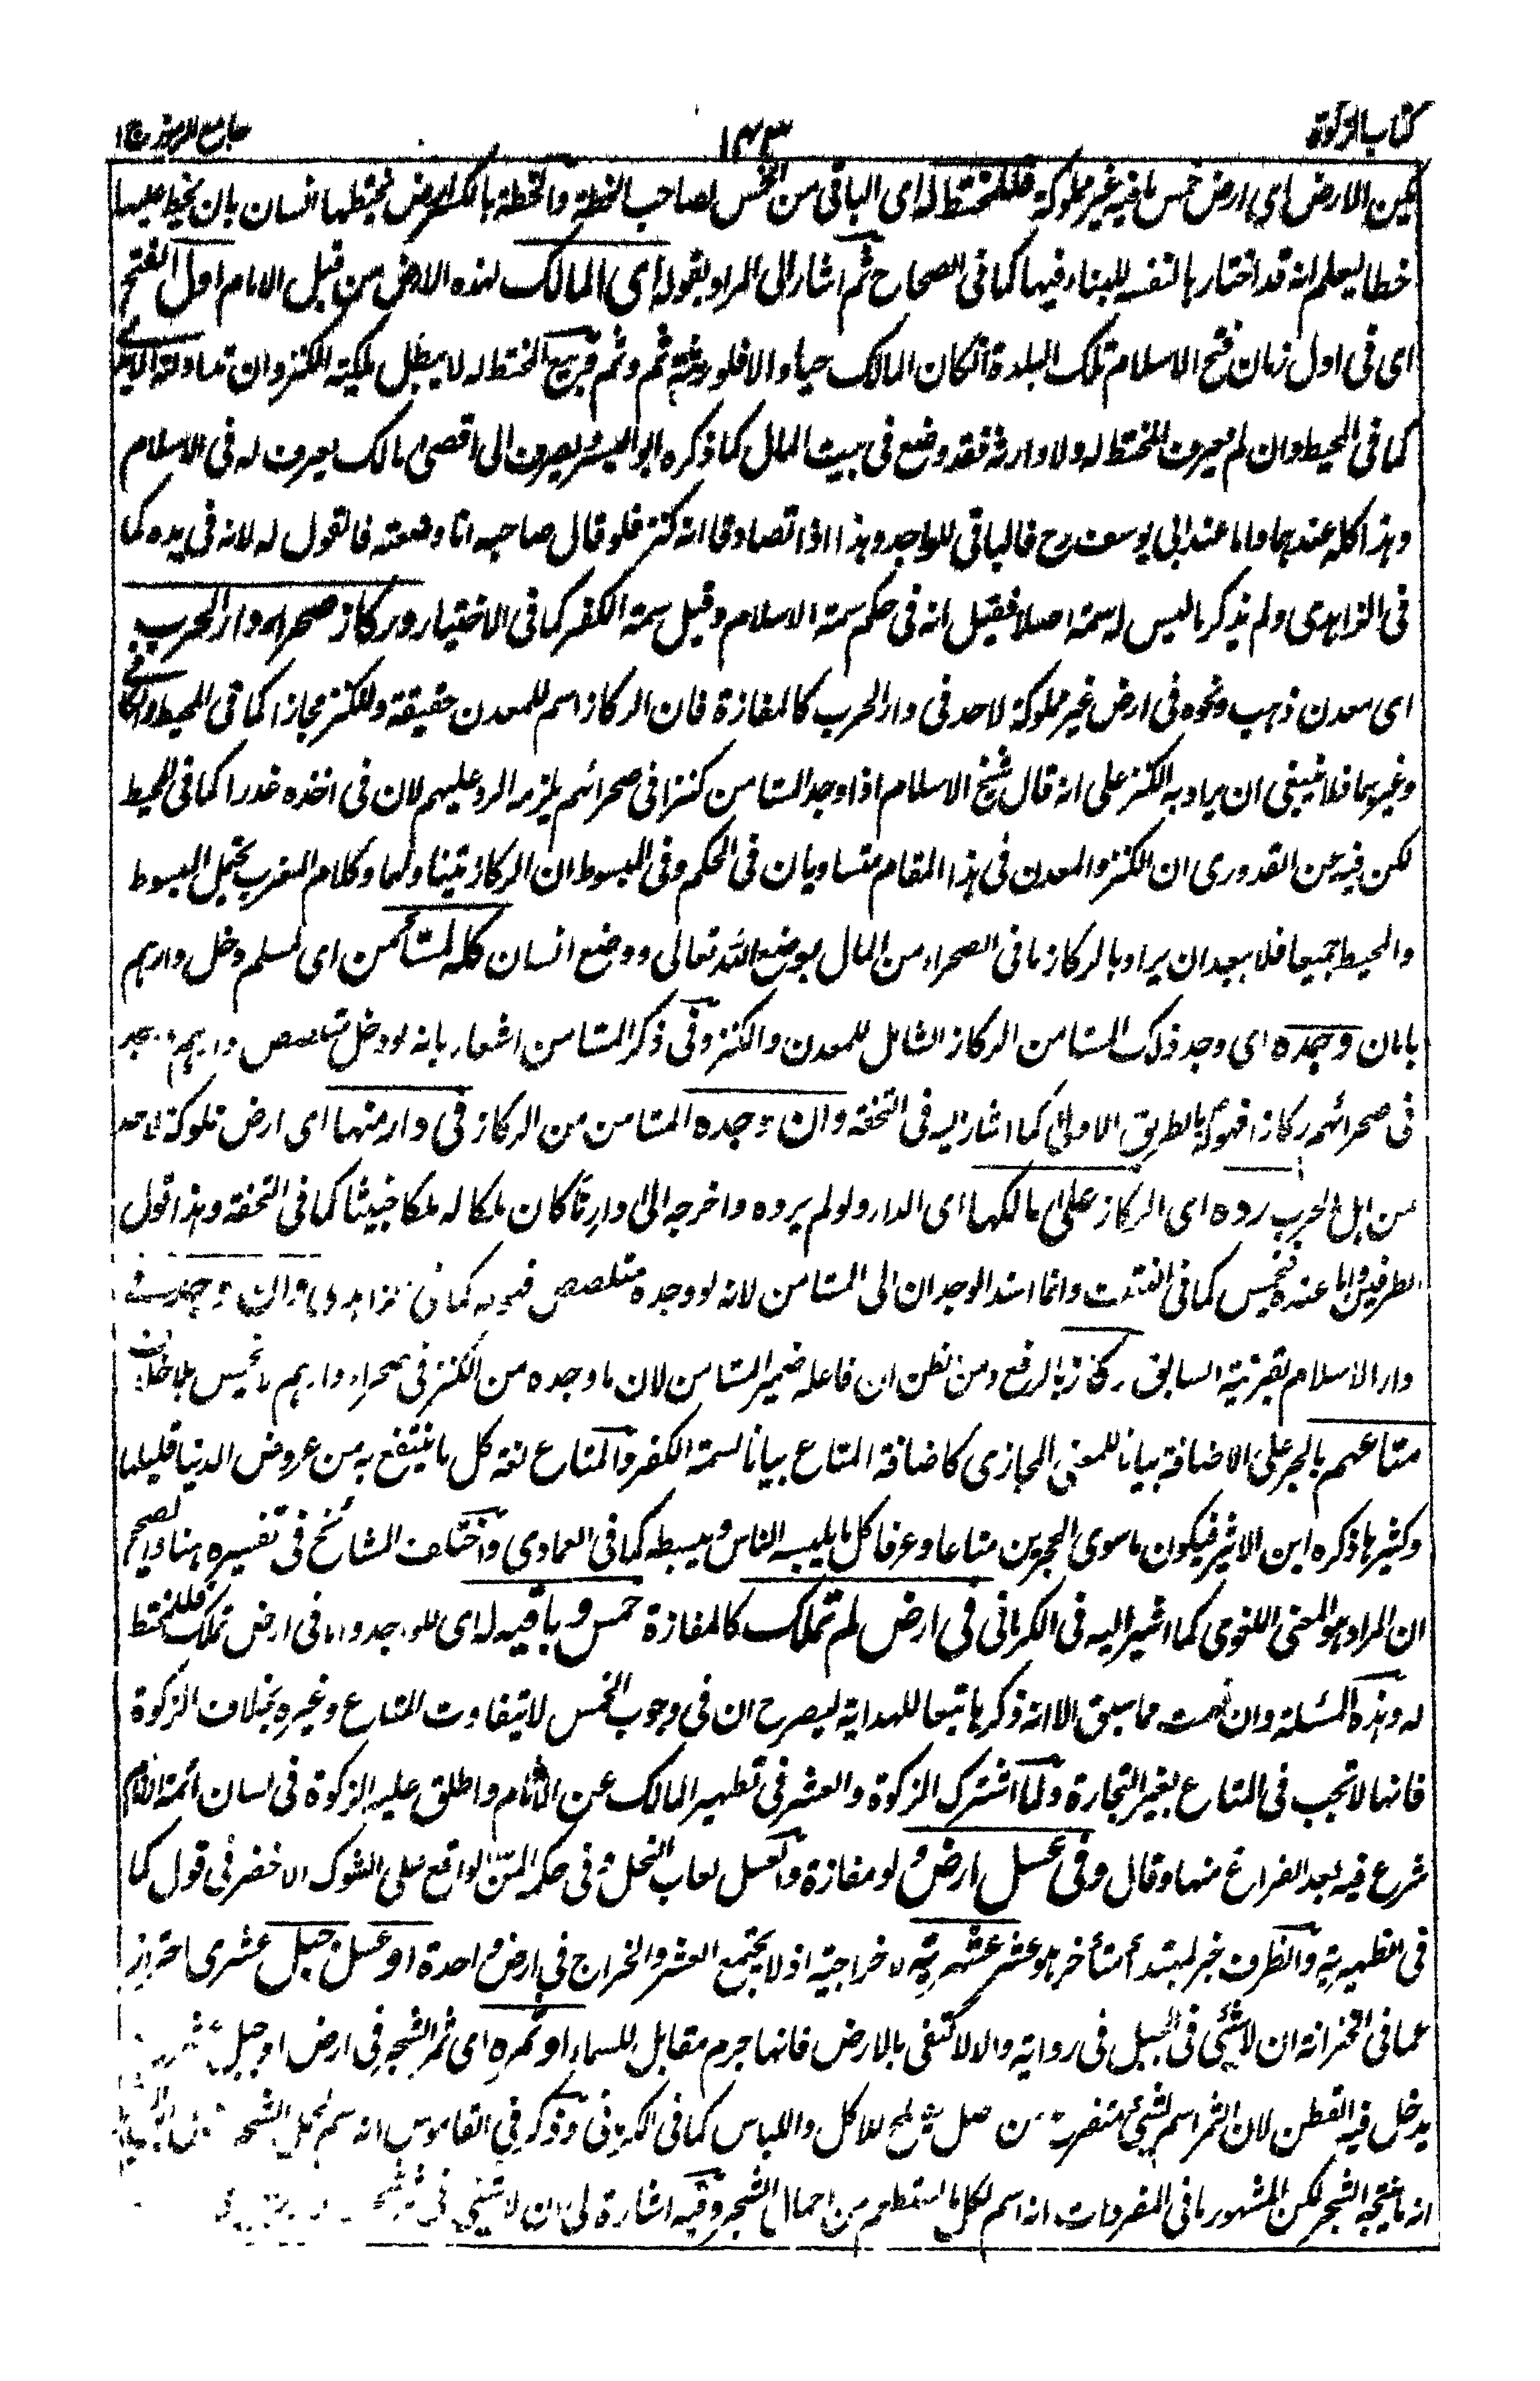 كتاب الزكوة ١٤٣ جامع الرموز ج١
الارض اي ارض خمس ما فيه غير مملوكة فللمختط له اى الباقى من الخمس لصاحب الخطة والخطة بالكسر ارض يختطها انسان بان يخط عليها
خطا ليعلم انه قد اختارها لنفسه للبناء فيها كما فى الصحاح ثم اشار الى المراد بقوله اى المالك لهذه الارض من قبل الامام اول الفتح
اى فى اول زمان فتح الاسلام تلك البلدة انكان المالك حيا والا فلورثته ثم وثم فبيع المختط له لا يبطل ملكية الكنز وان تداولته الايدى
كما فى المحيط وان لم يعرف المختط له ولا وارثه فقد وضع فى بيت المال كما ذكره ابو اليسر يصرف الى اقصى مالك يعرف له فى الاسلام
وهذا كله عندهما واما عند ابى يوسف رح فالباقى للواجد وهذا اذا تصادقا انه كنز فلو قال صاحبه انا وضعته فالقول له لانه فى يده كما
فى الزاهدى ولم يذكر ما ليس له سمة اصلا فقيل انه فى حكم سمة الاسلام وقيل سمة الكفر كما فى الاختيار وركاز صحراء دار الحرب
اى معدن ذهب ونحوه فى ارض غير مملوكة لاحد فى دار الحرب كالمفازة فان الركاز اسم للمعدن حقيقة وللكنز مجازا كما فى المحيط والكافى
وغيرهما فلا ينبغى ان يراد به الكنز على انه قال شيخ الاسلام اذا وجد المستامن كنزا فى صحرائهم يلزمه الرد عليهم لان فى اخذه غدرا كما فى المحيط
لكن فيه عن القدورى ان الكنز والمعدن فى هذا المقام متساويان فى الحكم وفى المبسوط ان الركاز يتناولهما وكلام المغرب يحتمل المبسوط
والمحيط جميعا فلا يبعد ان يراد بالركاز ما فى الصحراء من المال بوضع الله تعالى ووضع انسان كله لمستأمن اى لمسلم دخل دارهم
بامان وجده اى وجد ذلك المستامن الركاز الشامل للمعدن والكنز وفى ذكر المستامن اشعار بانه لو دخل متلصص دارهم
فى صحرائهم ركازا فهو له بالطريق الاولى كما اشار اليه فى التحفة وان وجده المستامن من الركاز فى دار منها اى ارض مملوكة لاحد
من اهل الحرب رده اى الركاز على مالكها اى الدار ولو لم يرده واخرجه الى دارنا كان ملكا له ملكا خبيثا كما فى التحفة وهذا قول
الطرفين واما عنده فخمس كما فى وانما اسند الوجدان الى المستامن لانه لو وجده متلصص فهو له كما فى الزاهدى وان وجد فى
دار الاسلام بقرينة السابق ركاز بالرفع ومن ظن ان فاعله ضمير المستامن لان ما وجده من الكنز فى صحراء دارهم لا يخمس بلا خلاف
متاعهم بالجر على الاضافة بيانا للمعنى المجازى كاضافة المتاع بيانا لسمة الكفر والمتاع لغة كل ما ينتفع به من عروض الدنيا قليلها
وكثيرها ذكره ابن الاثير فيكون ما سوى الحجرين متاعا وعرفا كل ما يلبسه الناس ويبسطه كما فى العمادى واختلف المشائخ فى تفسيره هنا والصحيح
ان المراد هو المعنى اللغوى كما اشير اليه فى الكرمانى فى ارض لم تملك كالمفازة خمس وباقيه له اى للواجد واما فى ارض تملك فللمختط
له وهذه المسئلة وان فهمت مما سبق الا انه ذكرها تبعا للهداية ليصرح ان فى وجوب الخمس لا يتفاوت المتاع وغيره بخلاف الزكوة
فانها لا تجب فى المتاع بغير التجارة ولما اشترك الزكوة والعشر فى تطهير المالك عن الآثام واطلق عليه الزكوة فى لسان ائمة الانام
شرع فيه بعد الفراغ منها وقال وفى عسل ارض ولو مفازة والعسل لعاب النحل وفى حكمه المن الواقع على الشوك الاخضر فى قول كما
فى الظهيرية والظرف خبر لمبتدأ متأخر هو عشر عشرية لا خراجية اذ لا يجتمع العشر والخراج فى ارض واحدة او عسل جبل عشرى احتراز
عما فى الخزانة ان لا شئ فى الجبل فى رواية والا لاكتفى بالارض فانها جرم مقابل للسماء او ثمره اى ثمر الشجر فى ارض او جبل
يدخل فيه القطن لان الثمر اسم لشئ متفرع من اصل يصلح للاكل واللباس كما فى وذكر فى القاموس انه اسم لحمل الشجر
انه ما ينتجه الشجر لكن المشهور ما فى المفردات انه اسم لكل ما يستطعم من احمال الشجر وفيه اشارة الى ان لا شئ فى